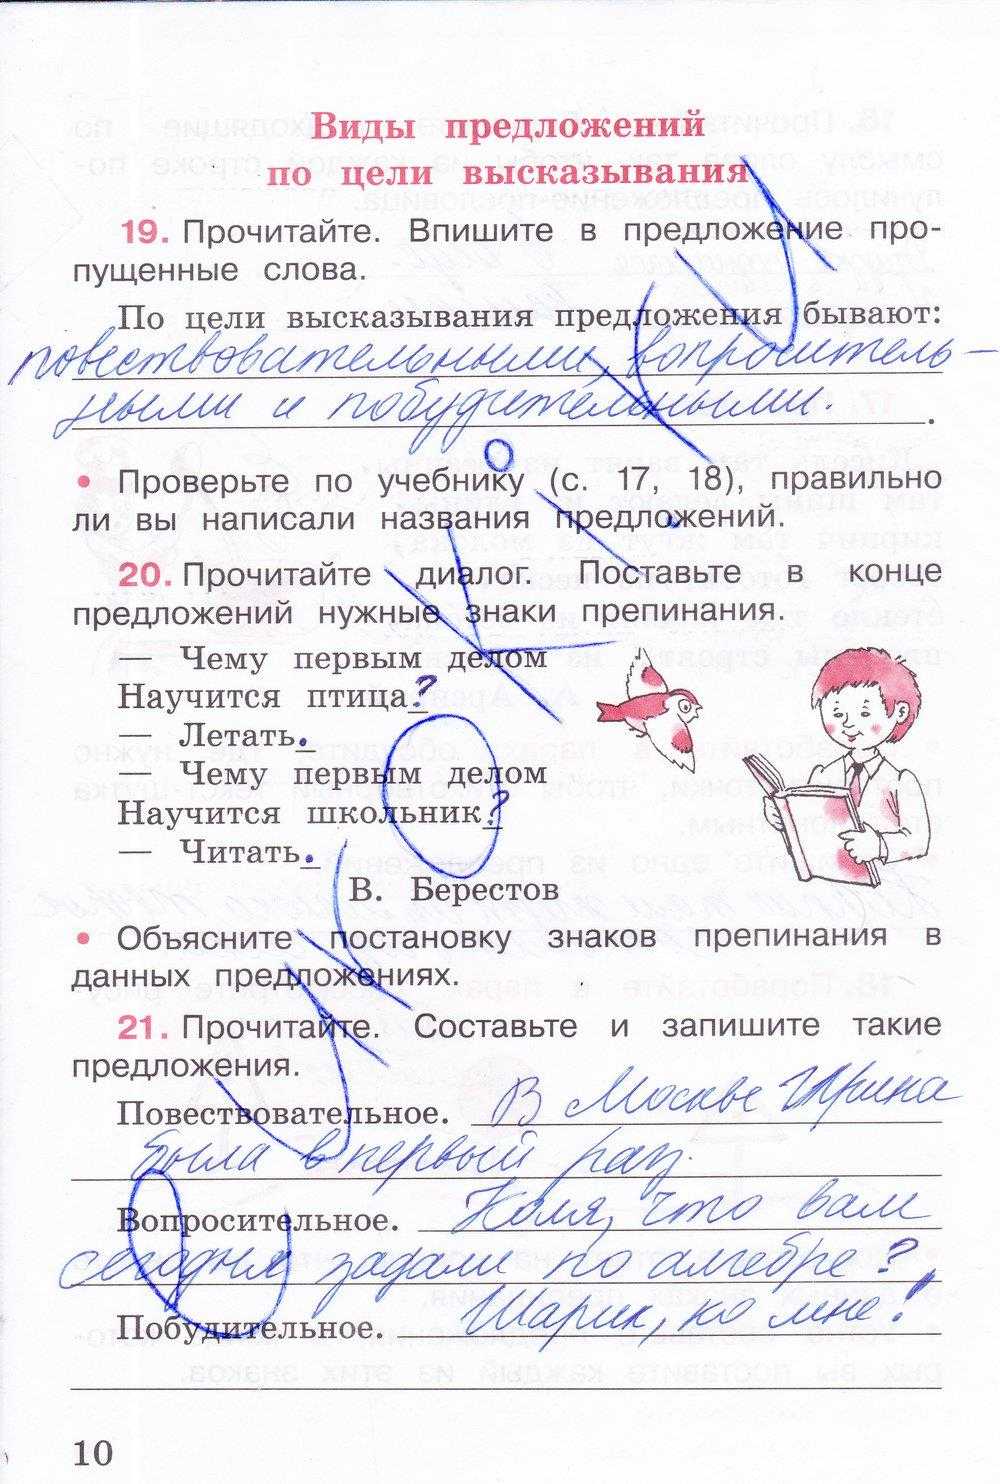 Виды предложений
по цели высказывания
19. Прочитайте. Впишите в предложение про-
пущенные слова.
По цели высказывания предложения бывают:
повествовательными, вопроситель-
ными и побудительными.
• Проверьте по учебнику (с. 17, 18), правильно
ли вы написали названия предложений.
20. Прочитайте диалог. Поставьте в конце
предложений нужные знаки препинания.
— Чему первым делом
Научится птица?
— Летать.
— Чему первым делом
Научится школьник?
— Читать.
В. Берестов
• Объясните постановку знаков препинания в
данных предложениях.
21. Прочитайте. Составьте и запишите такие
предложения.
Повествовательное. В Москве Ирина
была в первый раз.
Вопросительное. Коля, что вам
сегодня задали по алгебре?
Побудительное. Шарик, ко мне!
10